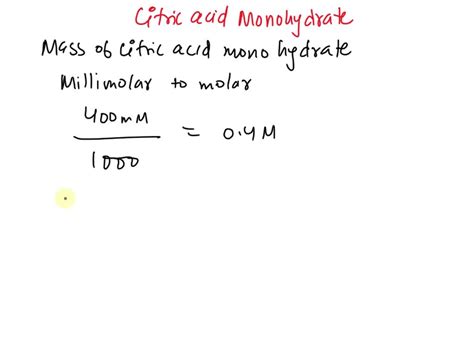 Citric acid Monohydrate
Mass of citric acid mono hydrate
Millimolar to molar
400mM
1000
= 0.4M